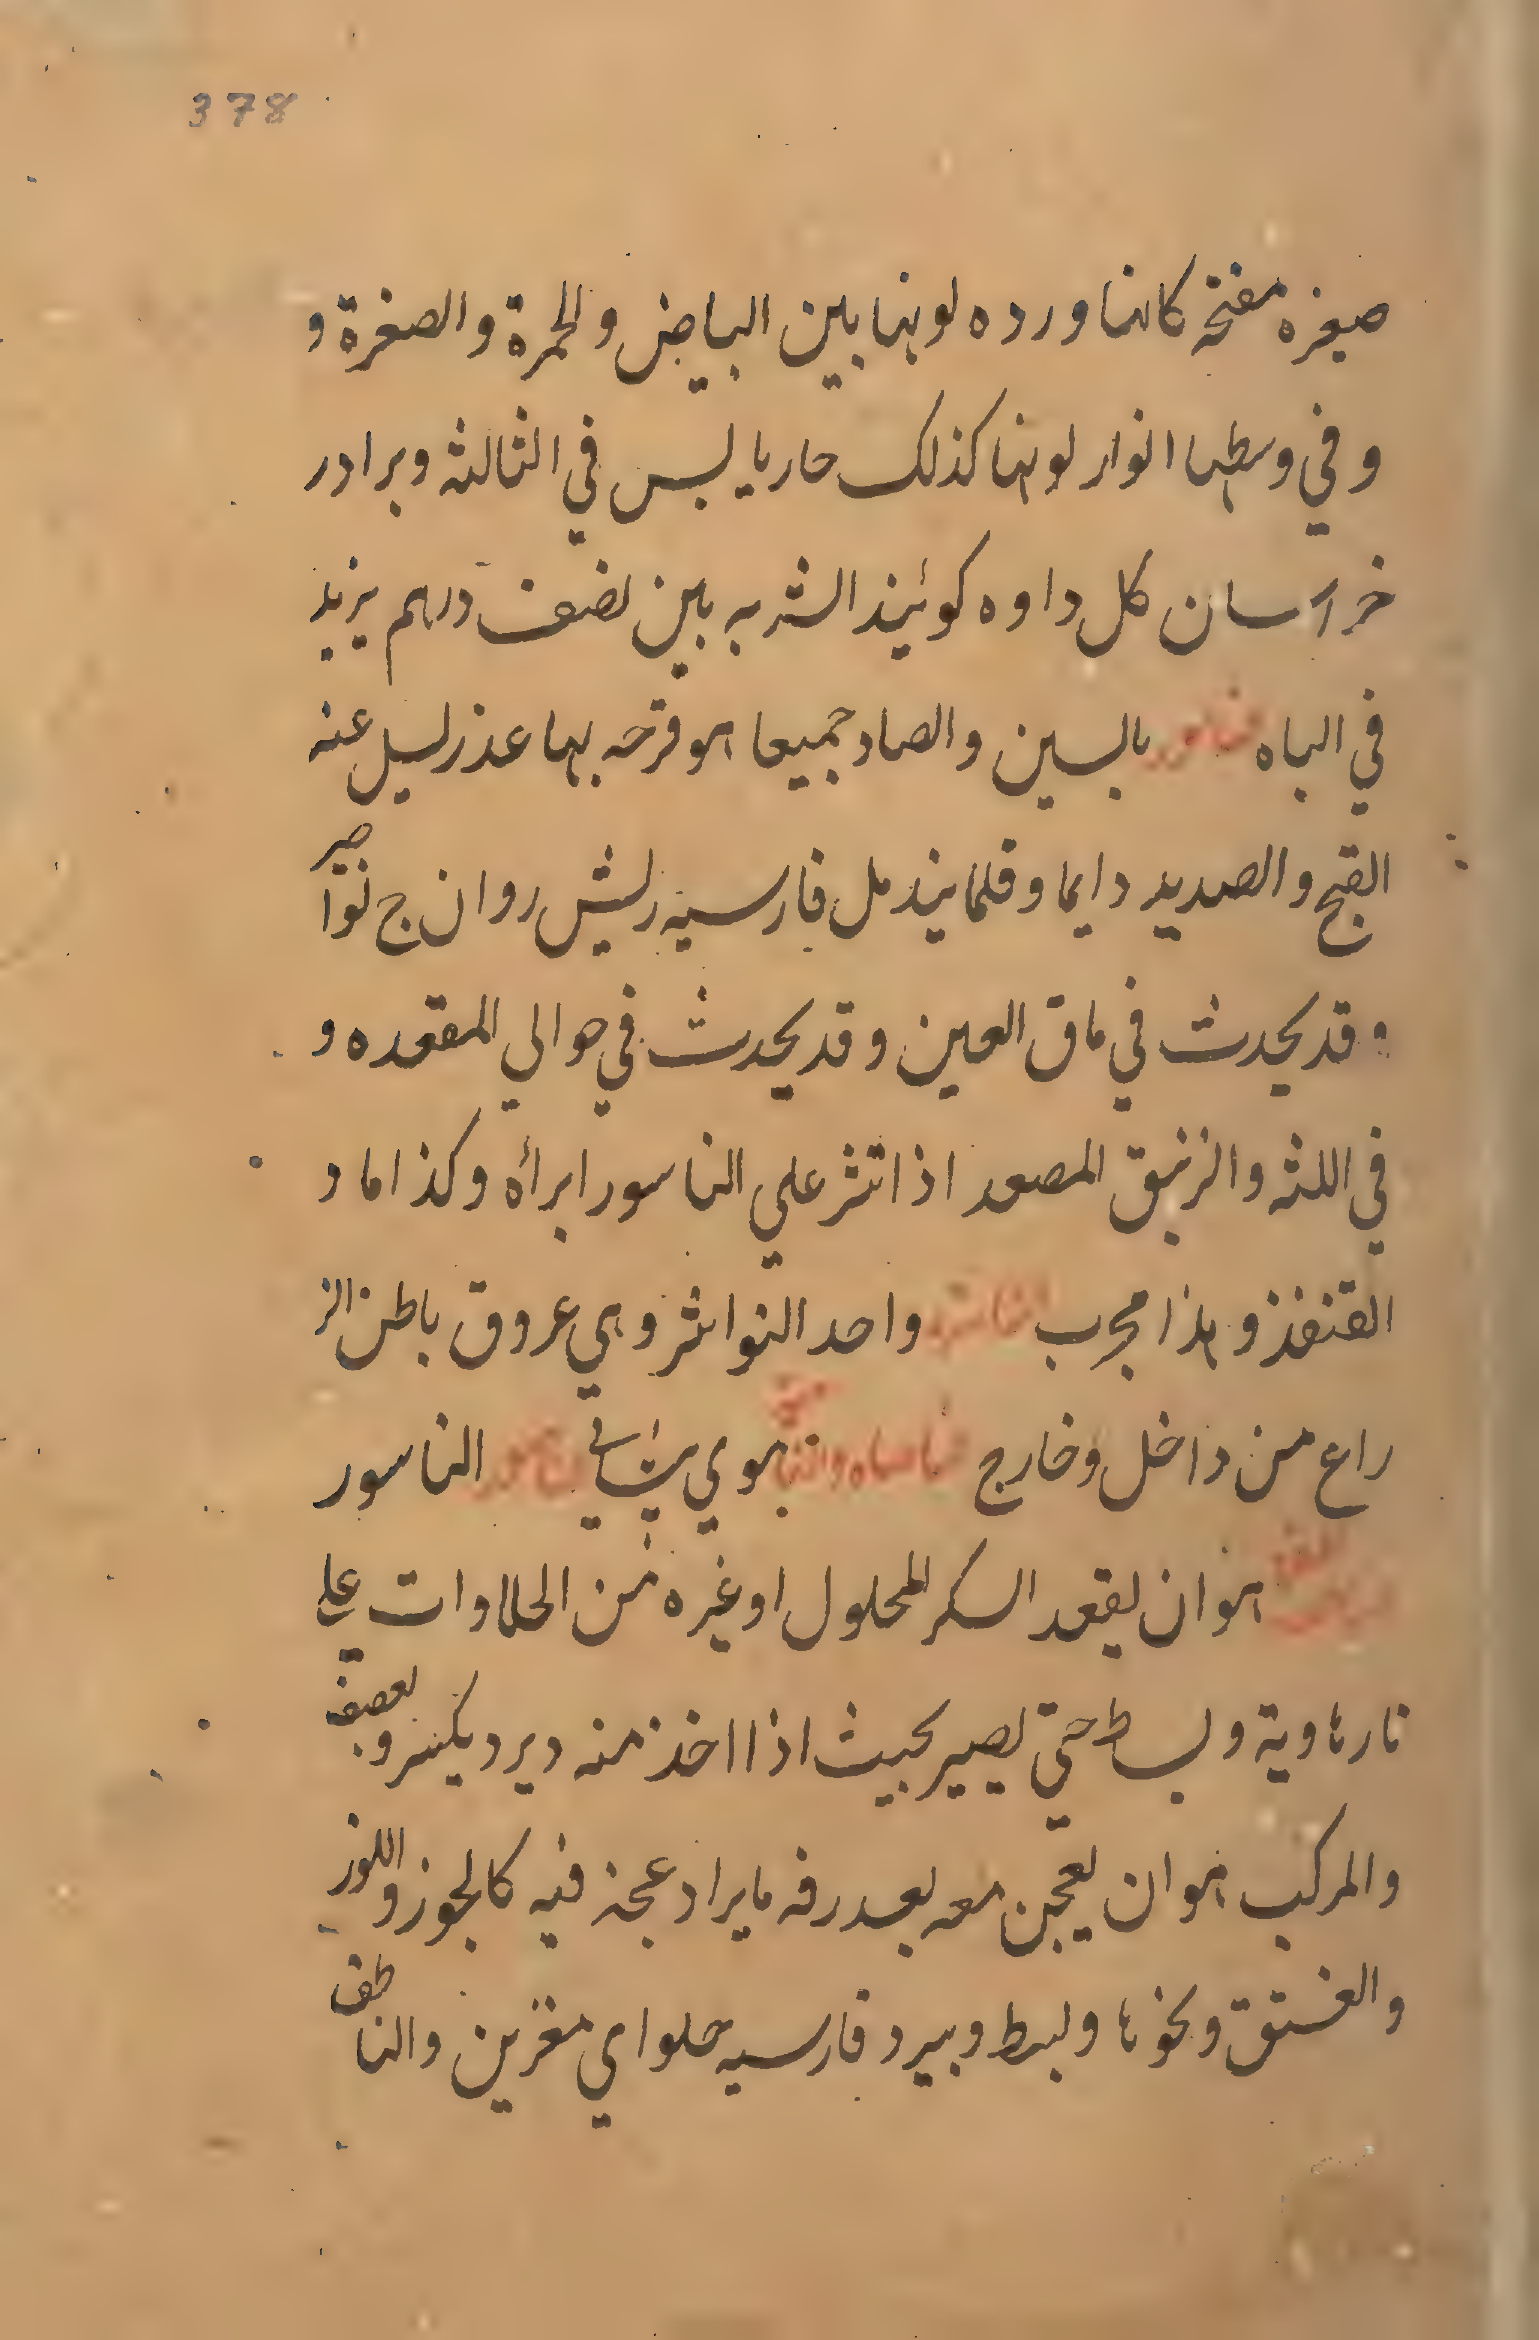 378
صغيره مفتحة كانها ورده لونها بين البياض والحمرة والصفرة و
و في وسطها انوار لونها كذلك حار يابس في الثالثه وبرادر
خراسان كل داوه كوئيند الشربه بين نصف درهم يزيد
في الباه ناسور بالسين والصاد جميعا هو قرحه لها عذر يسل عنه
القيح والصديد دايما وقلما يندمل فارسيه ريش روان ج نواصير
و قد يحدث في ماق العين وقد يحدث في حوالي المقعده و
في اللثه والزنبق المصعد اذا نثر علي الناسور ابرأه وكذا رماد
القنفذ وهذا مجرب الناشر واحد النواشر وهي عروق باطن الز
راع من داخل وخارج موي پيشاني الناسور
هو ان يقعد السكر المحلول او غيره من الحلاوات علي
نار هاوية و يساط حتي يصير بحيث اذا اخذ منه ويرد يكسر و يعصف
والمركب هو ان يعجن معه بعد رفه ما يراد عجنه فيه كالجوز واللوز
والفستق ونحوها و يبسط و يبرد فارسيه حلواي مغزين والناطف